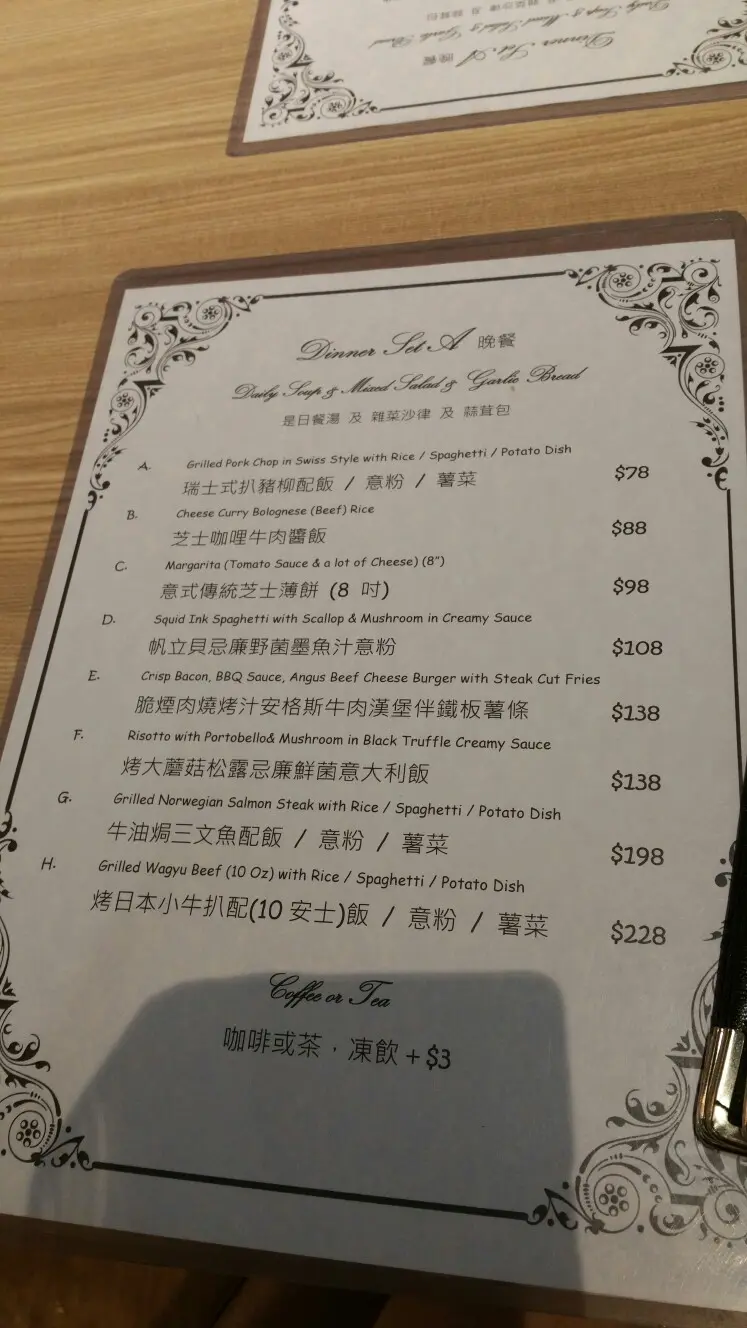 Daily Soup & Mixed Salad & Garlic Bread
Dinner Set A 晚餐
Dinner Set A 晚餐
Daily Soup & Mixed Salad & Garlic Bread
是日餐湯 及 雜菜沙律 及 蒜茸包
A. Grilled Pork Chop in Swiss Style with Rice / Spaghetti / Potato Dish
瑞士式扒豬柳配飯 / 意粉 / 薯菜 $78
B. Cheese Curry Bolognese (Beef) Rice
芝士咖哩牛肉醬飯 $88
C. Margarita (Tomato Sauce & a lot of Cheese) (8")
意式傳統芝士薄餅 (8 吋) $98
D. Squid Ink Spaghetti with Scallop & Mushroom in Creamy Sauce
帆立貝忌廉野菌墨魚汁意粉 $108
E. Crisp Bacon, BBQ Sauce, Angus Beef Cheese Burger with Steak Cut Fries
脆煙肉燒烤汁安格斯牛肉漢堡伴鐵板薯條 $138
F. Risotto with Portobello& Mushroom in Black Truffle Creamy Sauce
烤大蘑菇松露忌廉鮮菌意大利飯 $138
G. Grilled Norwegian Salmon Steak with Rice / Spaghetti / Potato Dish
牛油焗三文魚配飯 / 意粉 / 薯菜 $198
H. Grilled Wagyu Beef (10 Oz) with Rice / Spaghetti / Potato Dish
烤日本小牛扒配(10 安士)飯 / 意粉 / 薯菜 $228
Coffee or Tea
咖啡或茶，凍飲 + $3